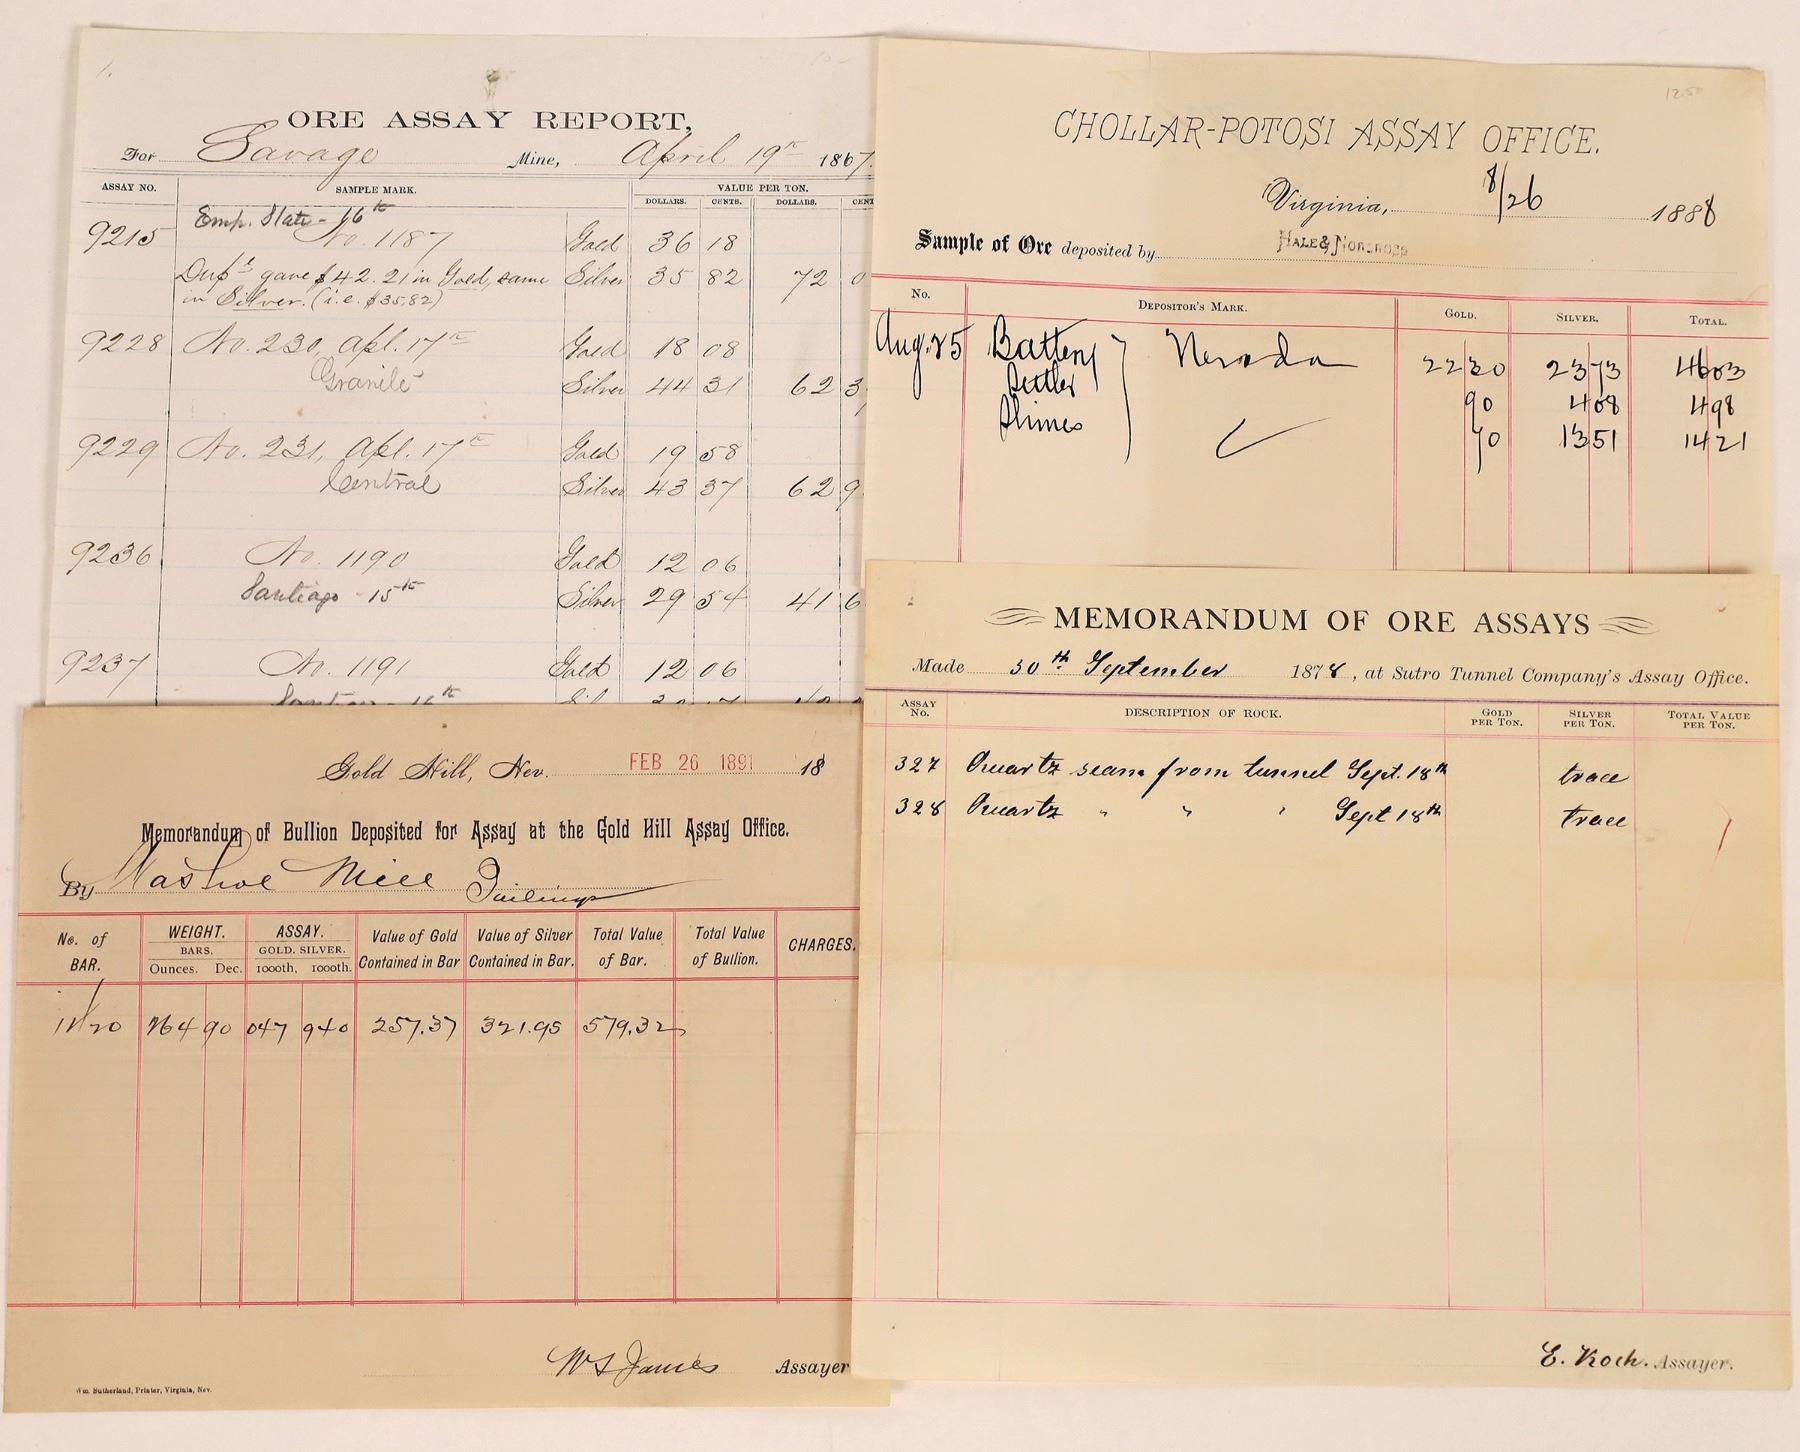 ORE ASSAY REPORT,
For Savage Mine, April 19th 1867.
ASSAY NO. SAMPLE MARK. VALUE PER TON.
DOLLARS. CENTS. DOLLARS. CENT
Emp. State - 16th
9215 No. 1187 Gold 36 18
Dupt gave $42.21 in Gold, same Silver 35 82 72 0
in Silver. (i.e. $35.82)
9228 No. 230, Apl. 17th Gold 18 08
Granite Silver 44 31 62 3
9229 No. 231, Apl. 17th Gold 19 58
Central Silver 43 37 62 9
9236 No. 1190 Gold 12 06
Santiago - 15th Silver 29 54 41 6
9237 No. 1191 Gold 12 06
CHOLLAR-POTOSI ASSAY OFFICE.
Virginia, 8/26 1888
Sample of Ore deposited by HALE & NORCROSS
No. DEPOSITOR'S MARK. GOLD. SILVER. TOTAL.
Aug. 25 Battery Nevada 22 30 23 73 46 03
Settler 90 4 08 4 98
Slimes 70 13 51 14 21
Gold Hill, Nev. FEB 26 1891 18
Memorandum of Bullion Deposited for Assay at the Gold Hill Assay Office.
By Washoe Mill Tailings
No. of BAR. WEIGHT. BARS. Ounces. Dec. ASSAY. GOLD. SILVER. 1000th, 1000th. Value of Gold Contained in Bar Value of Silver Contained in Bar. Total Value of Bar. Total Value of Bullion. CHARGES.
264 90 047 940 257.37 321.95 579.32
WS James Assayer
Wm. Sutherland, Printer, Virginia, Nev.
MEMORANDUM OF ORE ASSAYS
Made 30th September 1878, at Sutro Tunnel Company's Assay Office.
ASSAY No. DESCRIPTION OF ROCK. GOLD PER TON. SILVER PER TON. TOTAL VALUE PER TON.
327 Quartz seam from tunnel Sept. 18th trace
328 Quartz " " " Sept 18th trace
E. Koch. Assayer.